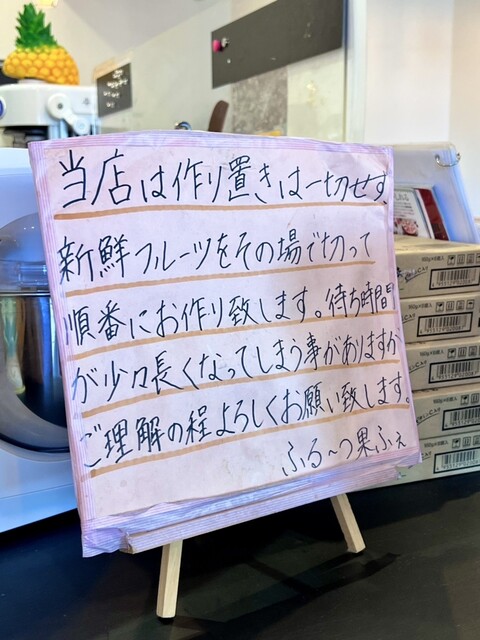 当店は作り置きは一切せず、
新鮮フルーツをその場で切って
順番にお作り致します。待ち時間
が少々長くなってしまう事がありますが
ご理解の程よろしくお願い致します。
ふる~つ果ふぇ